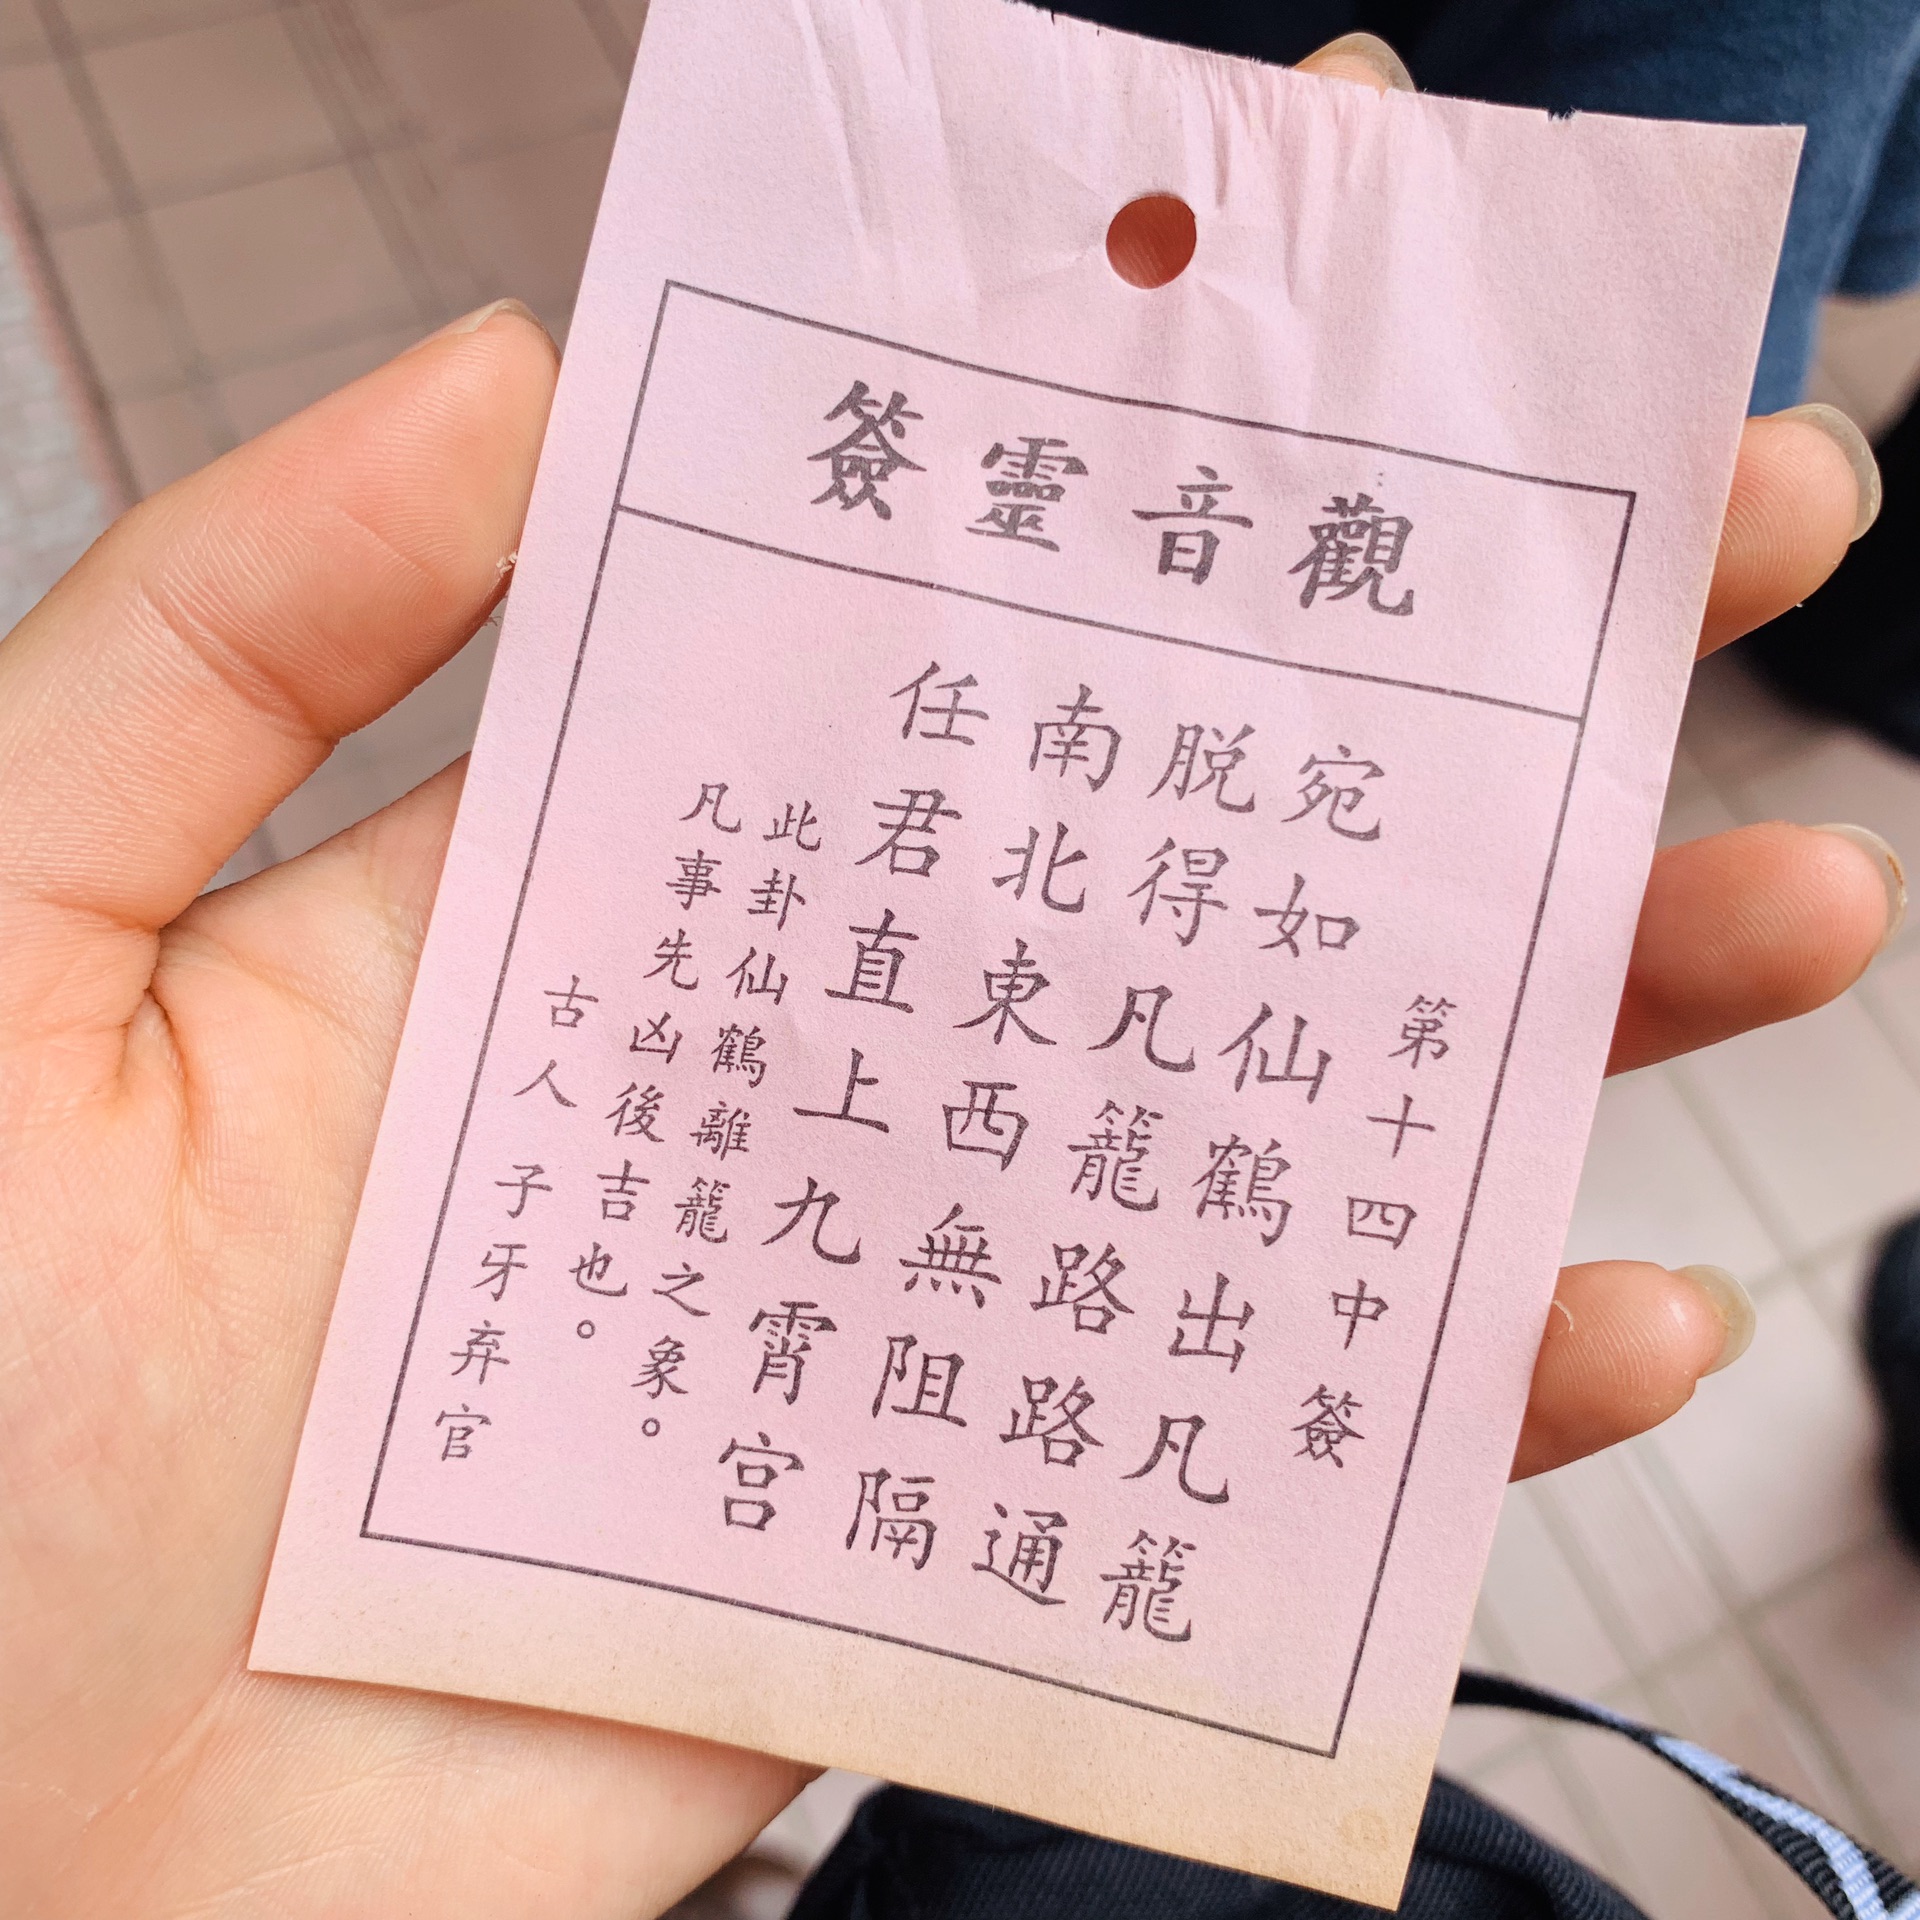 觀音靈簽
第十四中簽
宛如仙鶴出凡籠
脱得凡籠路路通
南北東西無阻隔
任君直上九霄宮
此卦仙鶴離籠之象。
凡事先凶後吉也。
古人 子牙弃官